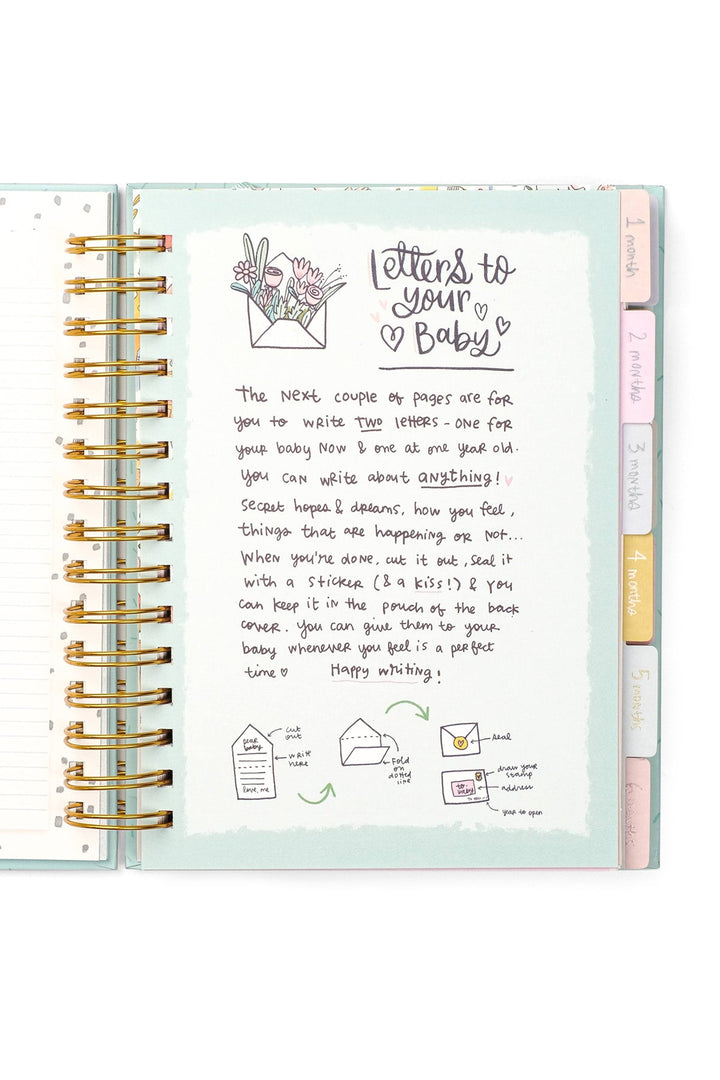 Letters to
your
Baby
The next couple of pages are for
you to write two letters - one for
your baby now & one at one year old.
You can write about anything!
Secret hopes & dreams, how you feel,
things that are happening or not...
When you're done, cut it out, seal it
with a sticker (& a kiss!) & you
can keep it in the pouch of the back
cover. You can give them to your
baby whenever you feel is a perfect
time Happy writing!
dear
baby
love, me
cut
out
write
here
Fold
on
dotted
line
seal
to
baby
draw your
stamp
address
year to open
1 month
2 months
3 months
4 months
5 months
6 months